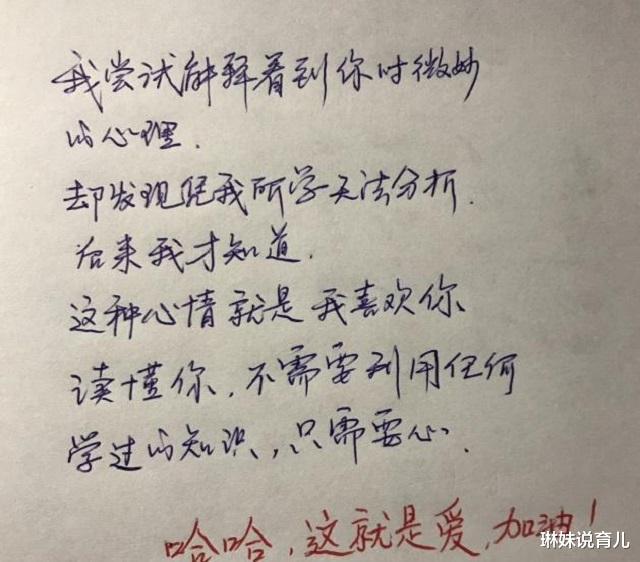 我尝试解释看到你时微妙
的心理.
却发现凭我所学无法分析.
后来我才知道.
这种心情就是我喜欢你
读懂你,不需要利用任何
学过的知识,只需要心.
哈哈,这就是爱,加油!
琳妹说育儿